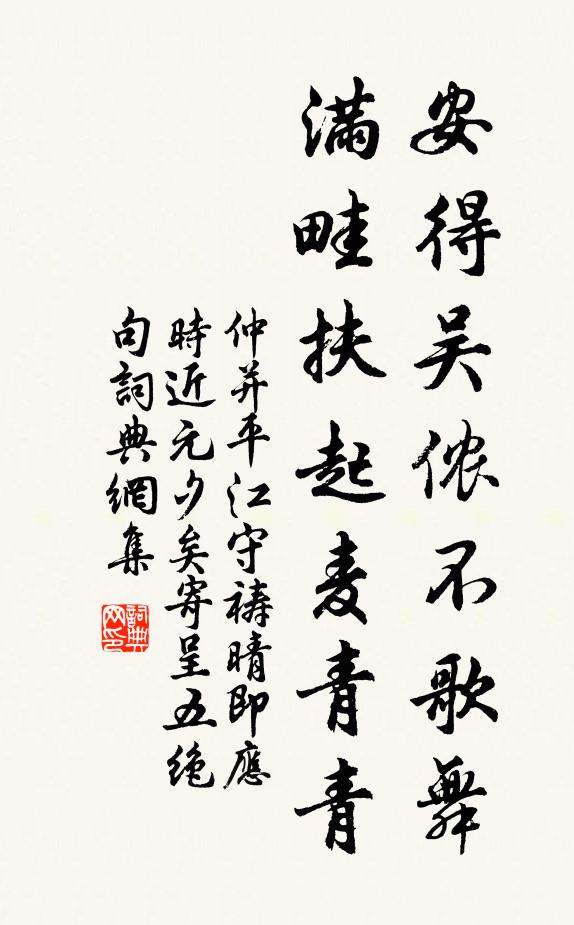 安得吴侬不歌舞
满畦扶起麦青青
仲并平江守祷晴即應
時近元夕矣寄呈五绝
句詞典網集
詞典网印